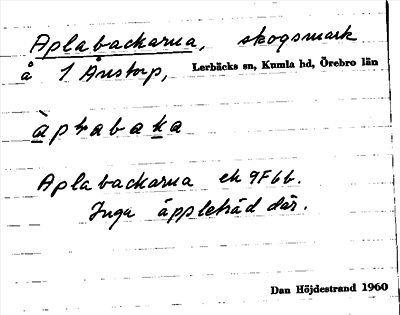 Aplabackarna, skogsmark
å 1 Ånstorp, Lerbäcks sn, Kumla hd, Örebro län
àpɬabaka
Aplabackarna ek 9F6b.
Inga äppleträd där.
Dan Höjdestrand 1960